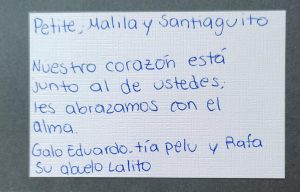 Petite, Malila y Santiaguito
Nuestro corazón está
junto al de ustedes,
les abrazamos con el
alma.
Galo Eduardo-tía pelu y Rafa
Su abuelo Lalito